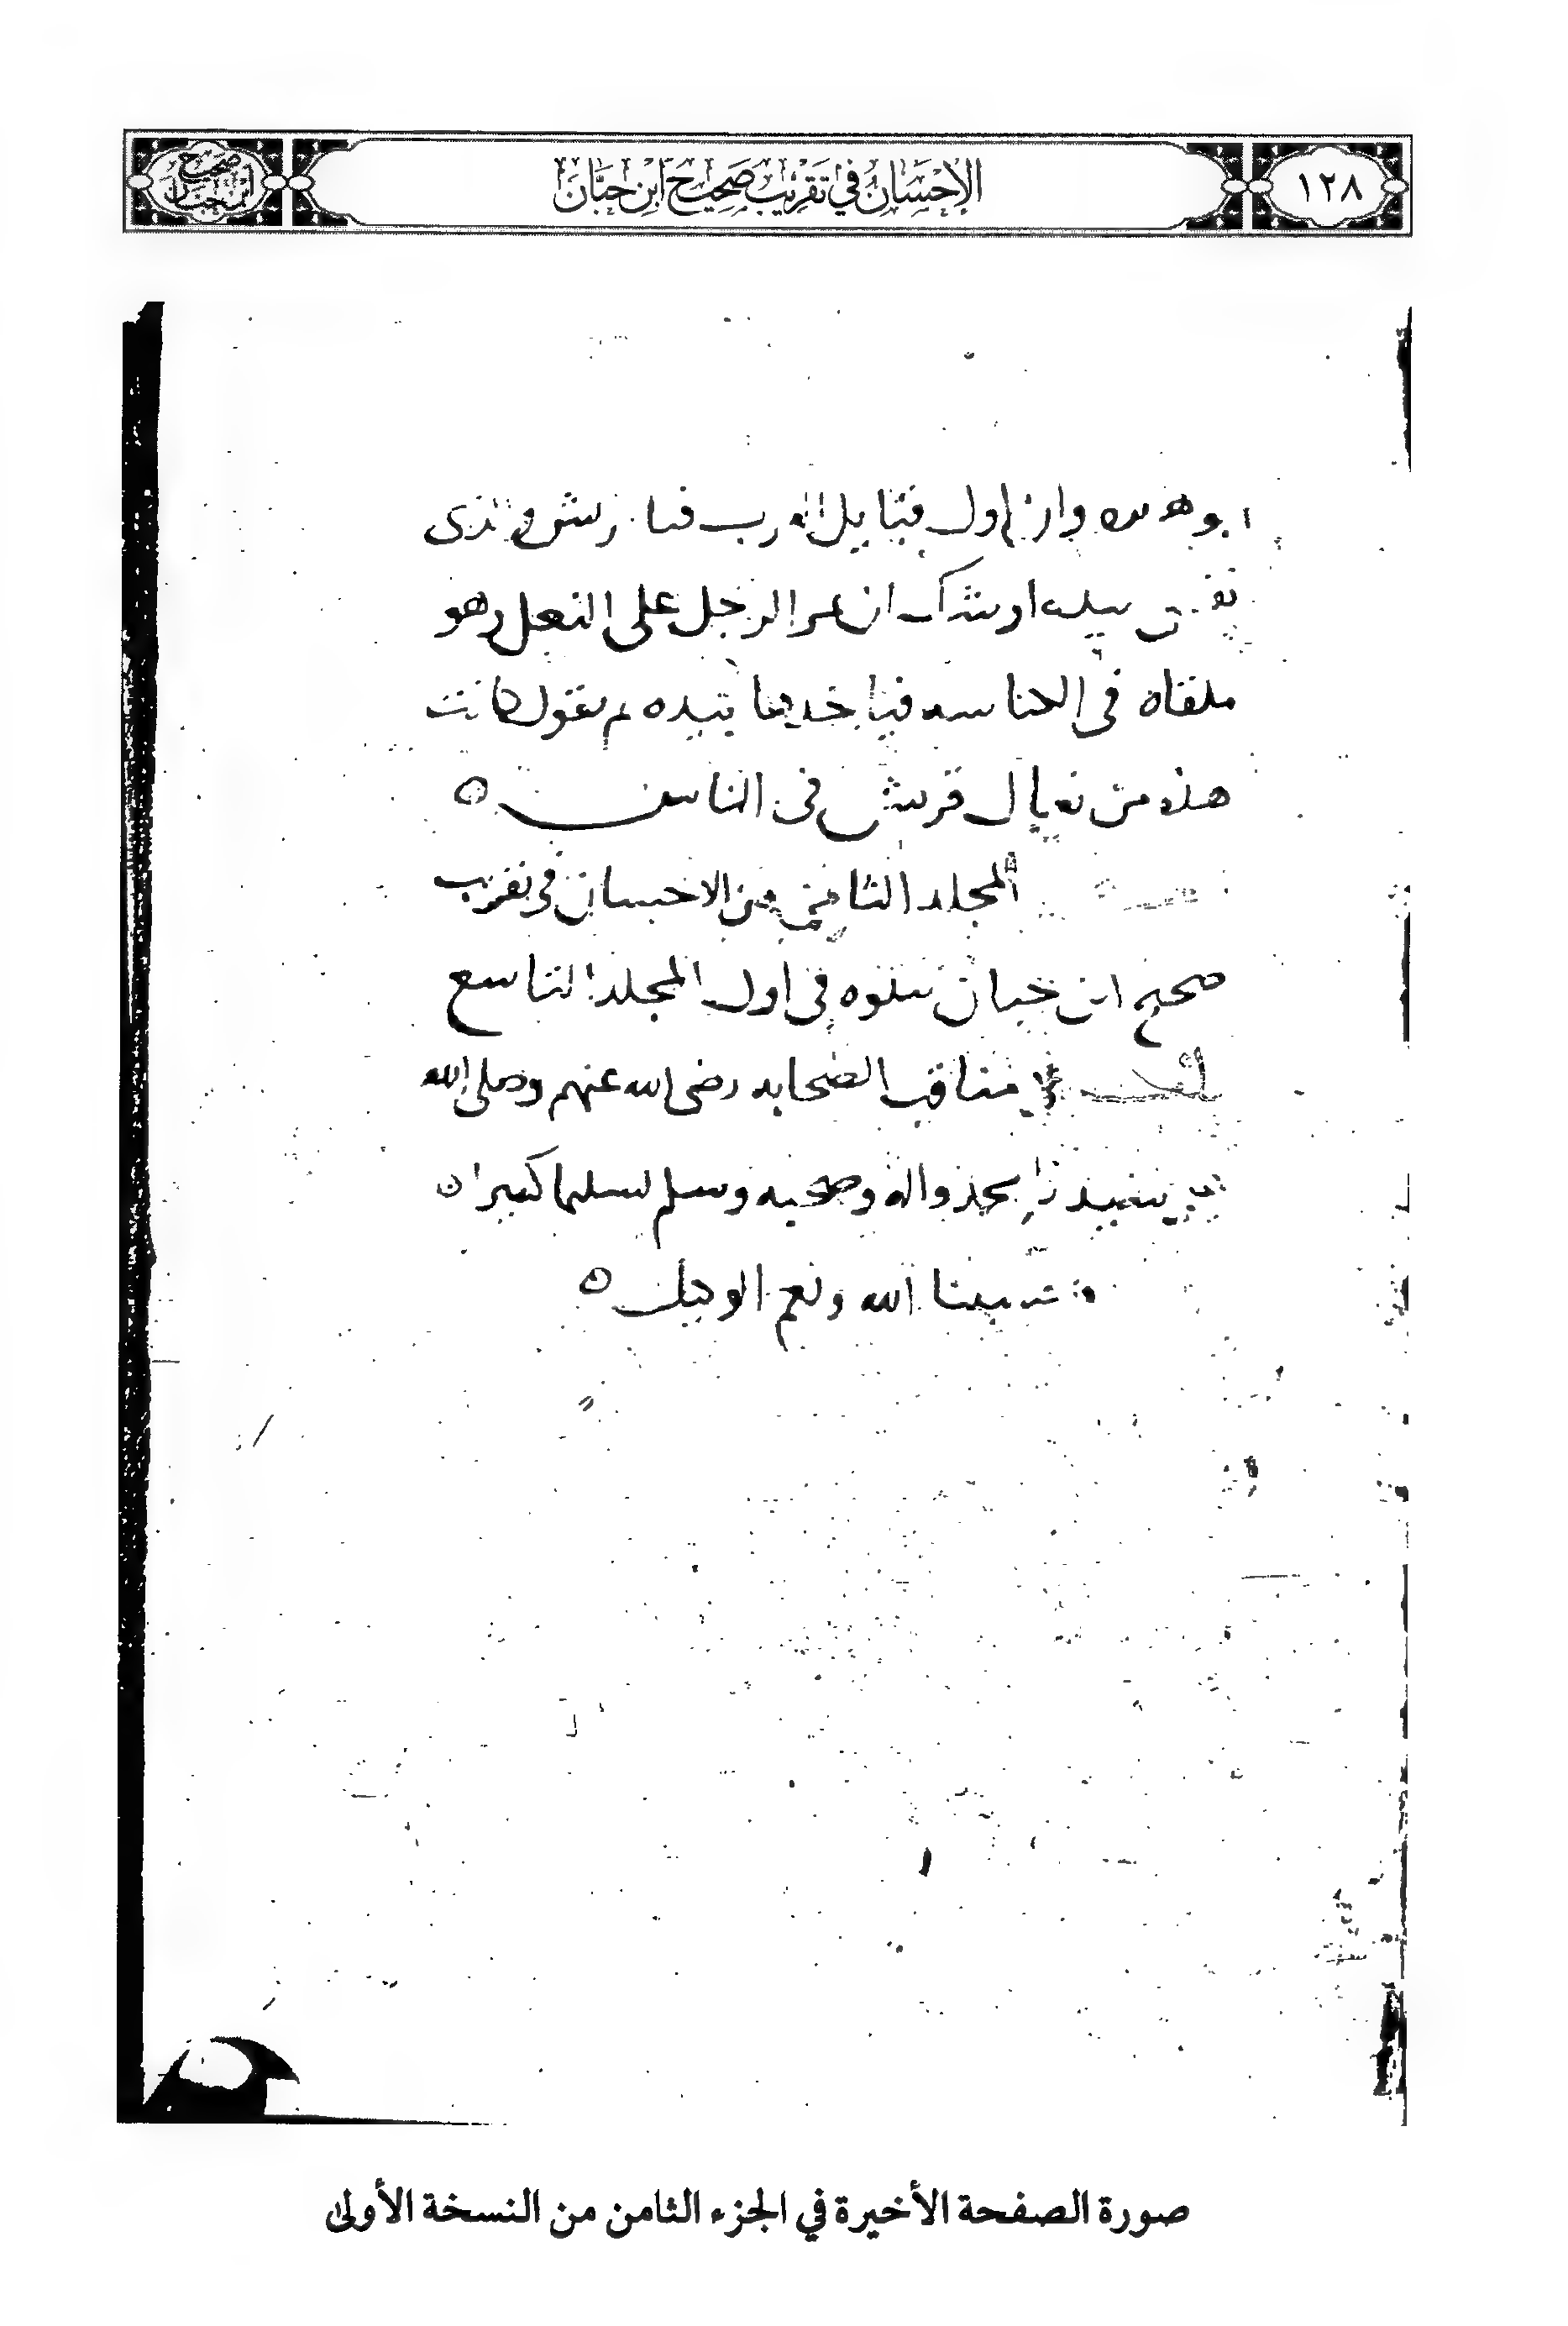 ١٢٨
الإِحْسَانُ فِي تَقْرِيبِ صَحِيحِ ابْنِ حِبَّانَ
ابو هريره وان اول قبايل العرب فنا قريش والذى
نفسى بيده اوشك ان يمر الرجل على النعل وهو
ملقاه فى الكناسه فياخذها بيده ثم يقول كانت
هذه من نعال قريش فى الناس
المجلد الثامن من الاحسان فى تقريب
صحيح ابن حبان يتلوه فى اول المجلد التاسع
مناقب الصحابه رضى الله عنهم وصلى الله
على سيدنا محمد واله وصحبه وسلم تسليما كثيرا
حسبنا الله ونعم الوكيل
صورة الصفحة الأخيرة في الجزء الثامن من النسخة الأولى